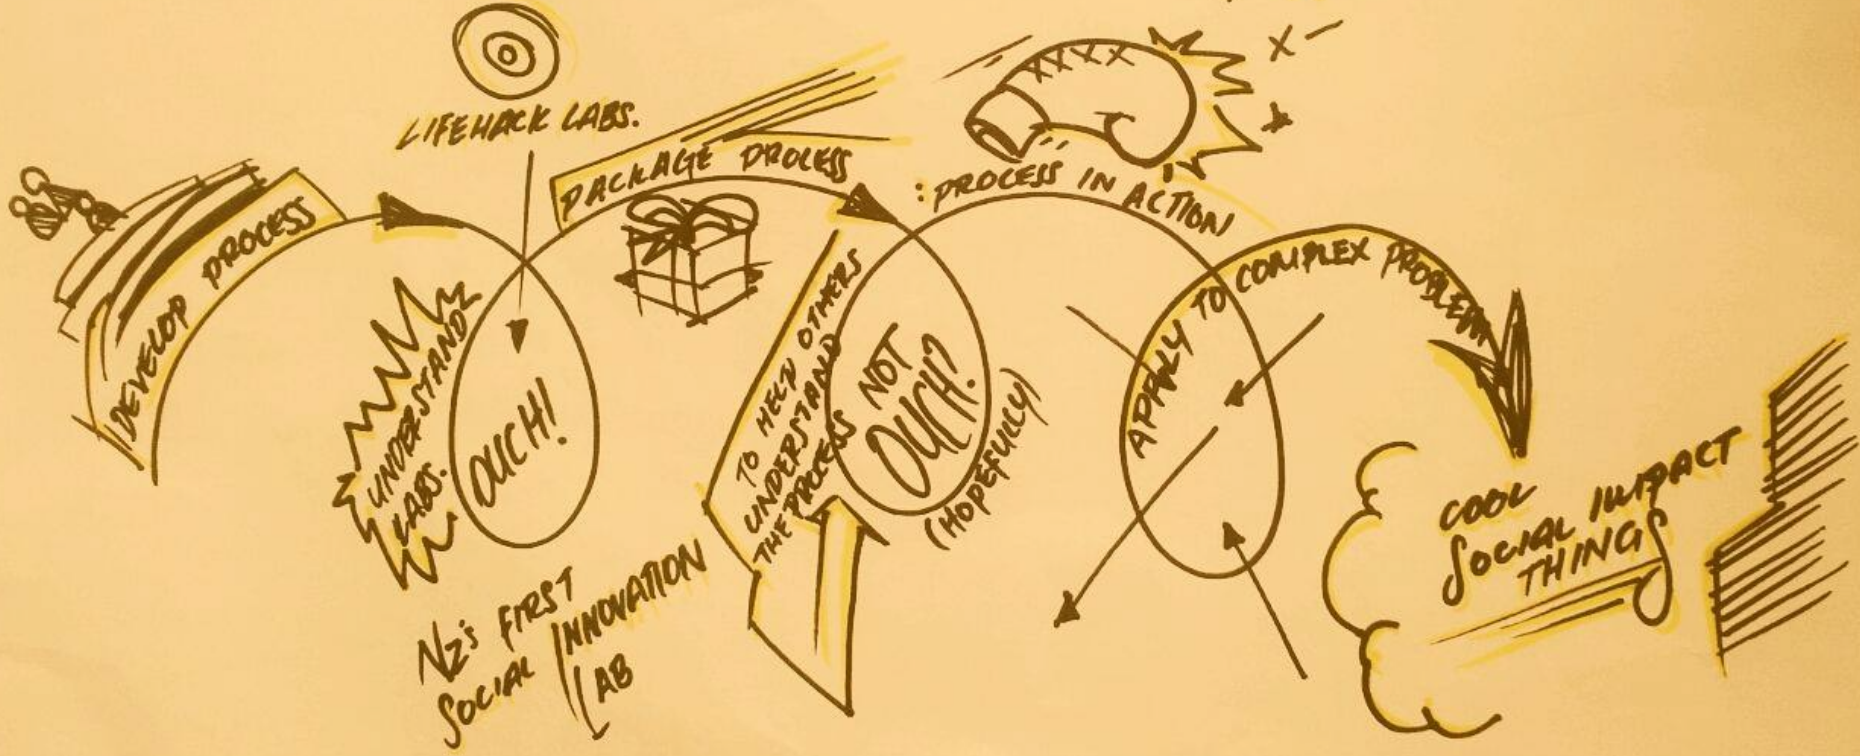 LIFEHACK LABS.
DEVELOP PROCESS
UNDERSTAND
LABS.
OUCH!
NZ's FIRST
SOCIAL INNOVATION
LAB
PACKAGE PROCESS
TO HELP OTHERS
UNDERSTAND
THE PROCESS
NOT
OUCH?
(HOPEFULLY)
: PROCESS IN ACTION
APPLY TO COMPLEX PROBLEM
COOL
SOCIAL IMPACT
THINGS